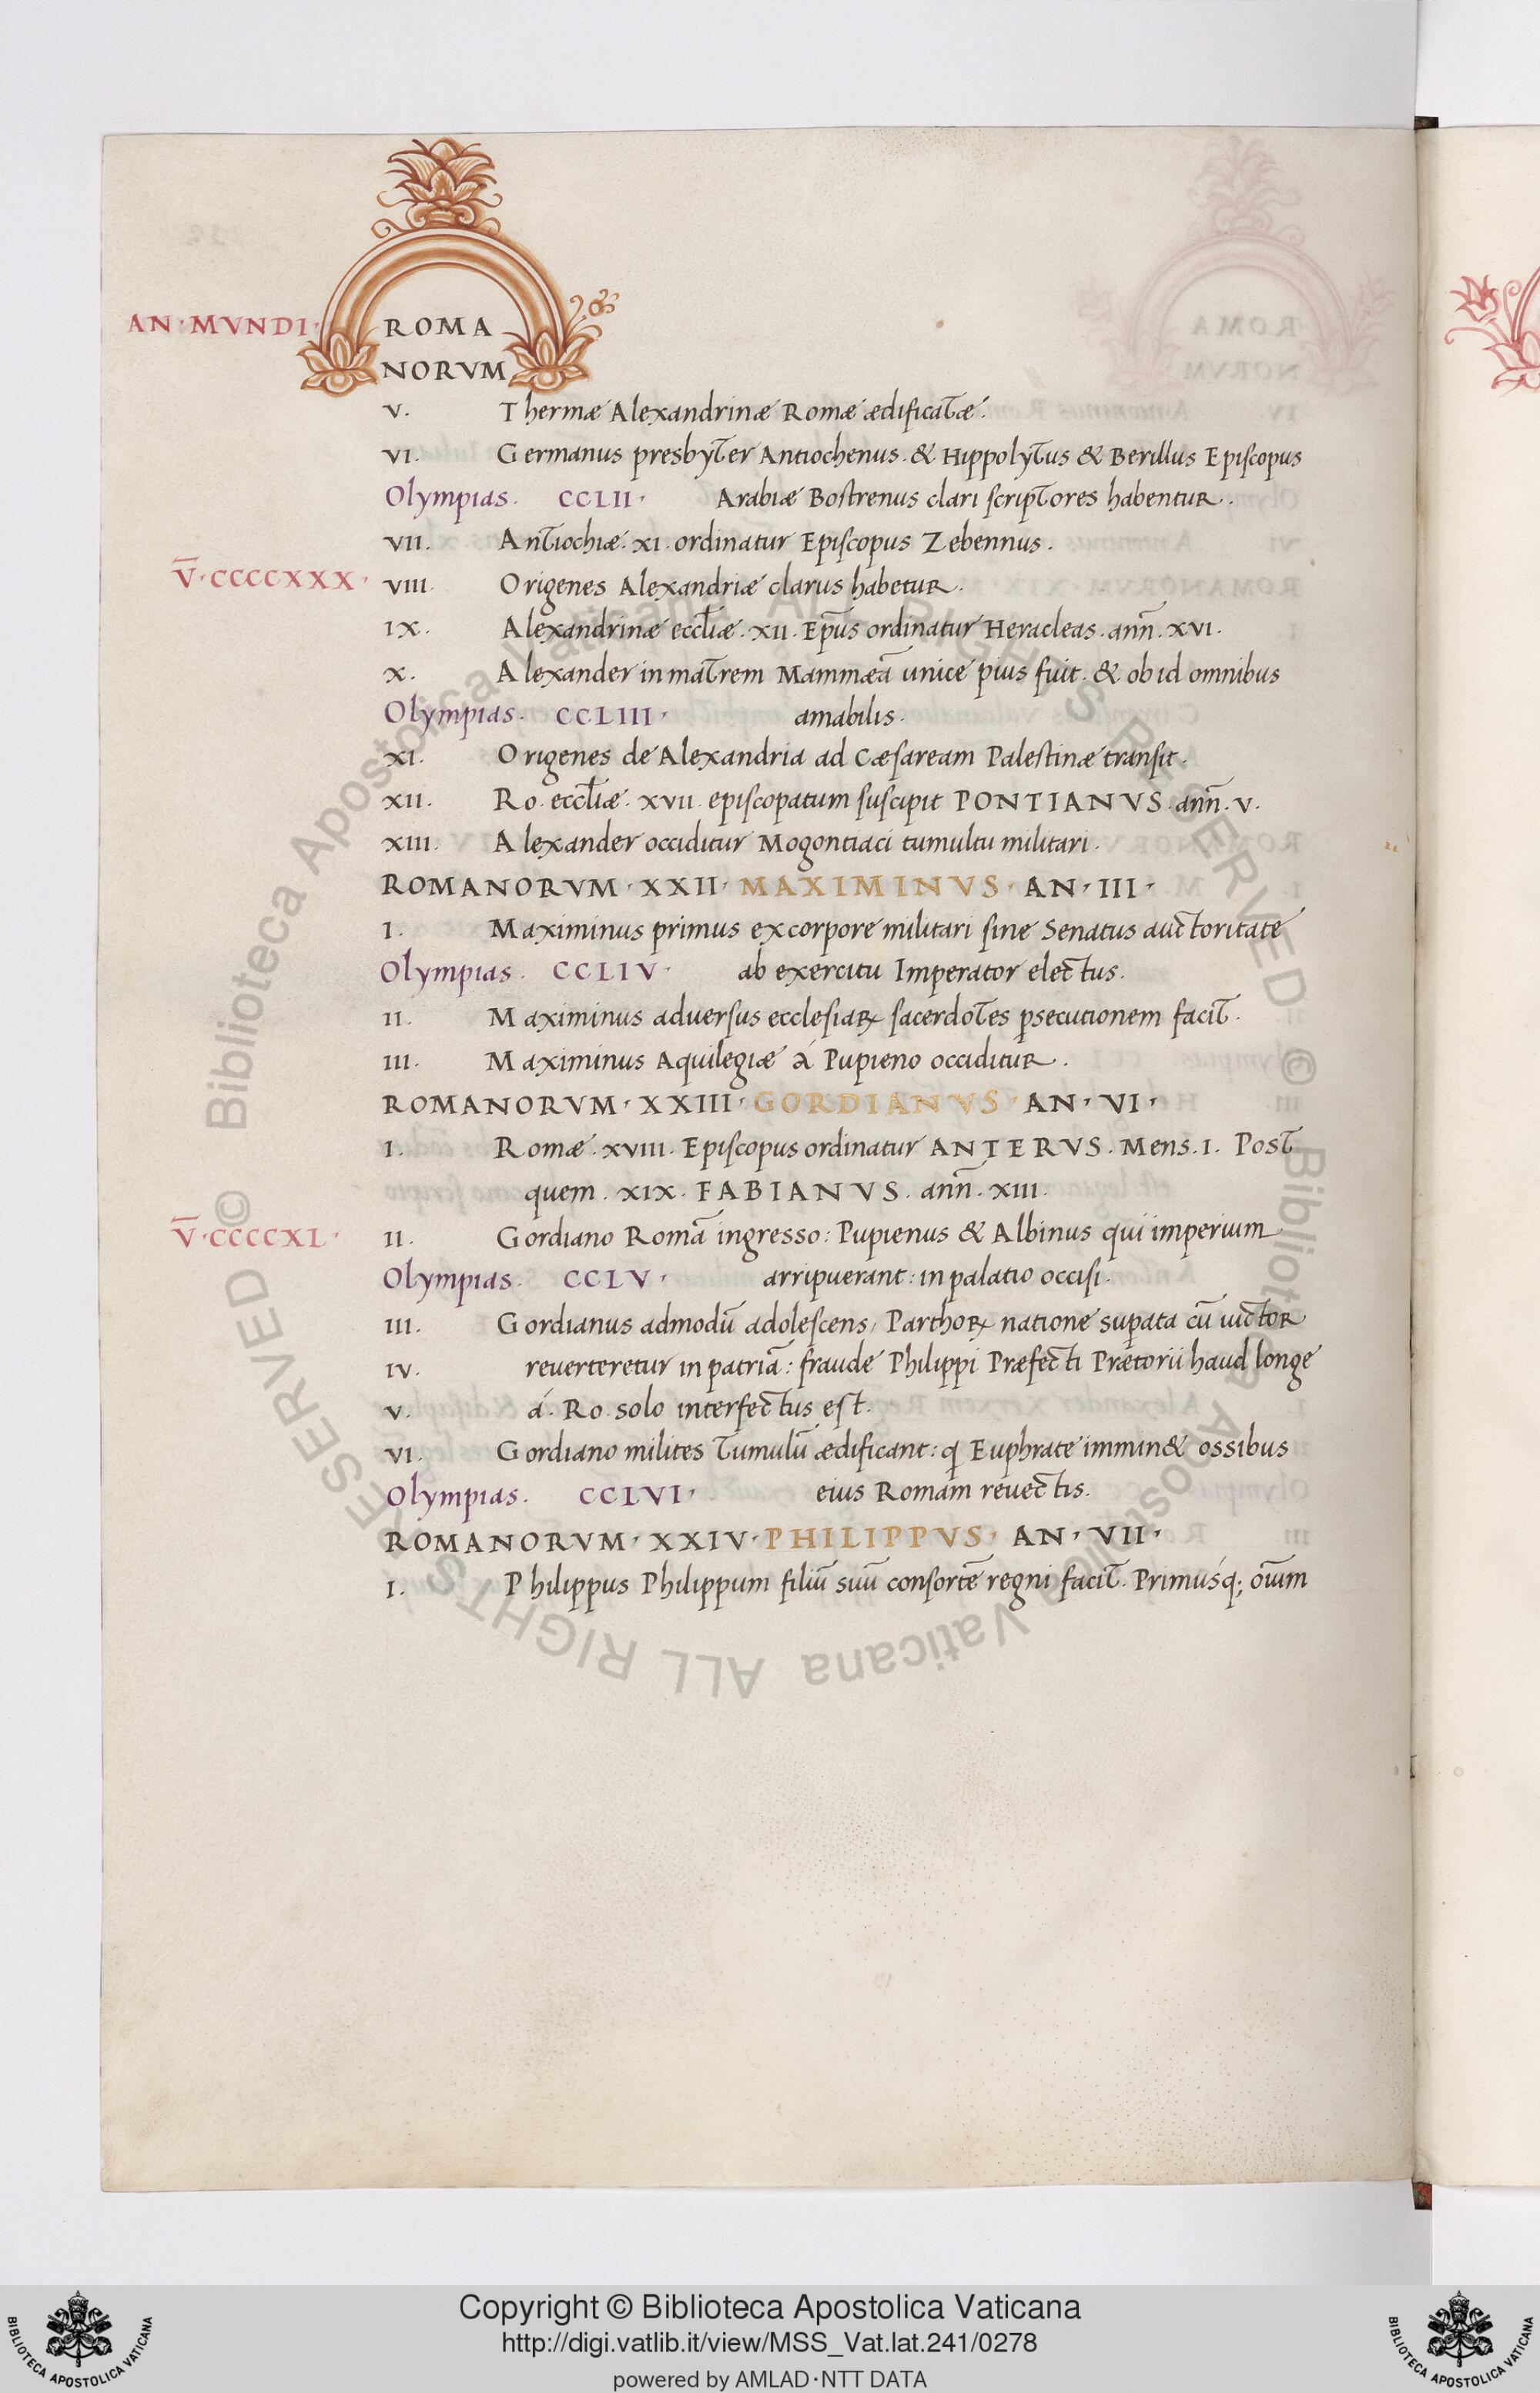 AN · MVNDI · ROMA
NORVM
V. Thermæ Alexandrinæ Romæ ædificatæ.
VI. Germanus presbyter Antiochenus. & Hippolytus & Berillus Episcopus
Olympias. CCLII · Arabiæ Bostrenus clari scriptores habentur.
VII. Antiochiæ. XI. ordinatur Episcopus Zebennus.
V̅ · CCCCXXX · VIII. Origenes Alexandriæ clarus habetur.
IX. Alexandrinæ eccl̄iæ. XII. Ep̄us ordinatur Heracleas. ann̄. XVI.
X. Alexander in matrem Mammæā unice pius fuit. & ob id omnibus
Olympias. CCLIII · amabilis.
XI. Origenes de Alexandria ad Cæsaream Palestinæ transit.
XII. Ro. eccl̄iæ. XVII. episcopatum suscipit PONTIANVS. ann̄. V.
XIII. Alexander occiditur Mogontiaci tumultu militari.
ROMANORVM · XXII · MAXIMINVS · AN · III ·
I. Maximinus primus ex corpore militari sine Senatus auctoritate
Olympias. CCLIV · ab exercitu Imperator electus.
II. Maximinus adversus ecclesiaꝝ sacerdotes ꝑsecutionem facit.
III. Maximinus Aquilegiæ à Pupieno occiditur.
ROMANORVM · XXIII · GORDIANVS · AN · VI ·
I. Romæ. XVIII. Episcopus ordinatur ANTERVS. Mens. I. Post
quem. XIX. FABIANVS. ann̄. XIII.
V̅ · CCCCXL · II. Gordiano Romā ingresso: Pupienus & Albinus qui imperium
Olympias. CCLV · arripuerant: in palatio occisi.
III. Gordianus admodū adolescens, Parthoꝝ natione suꝑata cū uictor
IV. reuerteretur in patriā: fraude Philippi Præfecti Prætorii haud longe
V. á. Ro. solo interfectus est.
VI. Gordiano milites tumulū ædificant: ꝗ Euphrate immin& ossibus
Olympias. CCLVI · eius Romam reuectis.
ROMANORVM · XXIV · PHILIPPVS · AN · VII ·
I. Philippus Philippum filiū suū consortē regni facit. Primusq́; oīum
© Biblioteca Apostolica Vaticana ALL RIGHTS RESERVED © Biblioteca Apostolica Vaticana ALL RIGHTS RESERVED
BIBLIOTECA APOSTOLICA VATICANA
Copyright © Biblioteca Apostolica Vaticana
http://digi.vatlib.it/view/MSS_Vat.lat.241/0278
powered by AMLAD·NTT DATA
BIBLIOTECA APOSTOLICA VATICANA